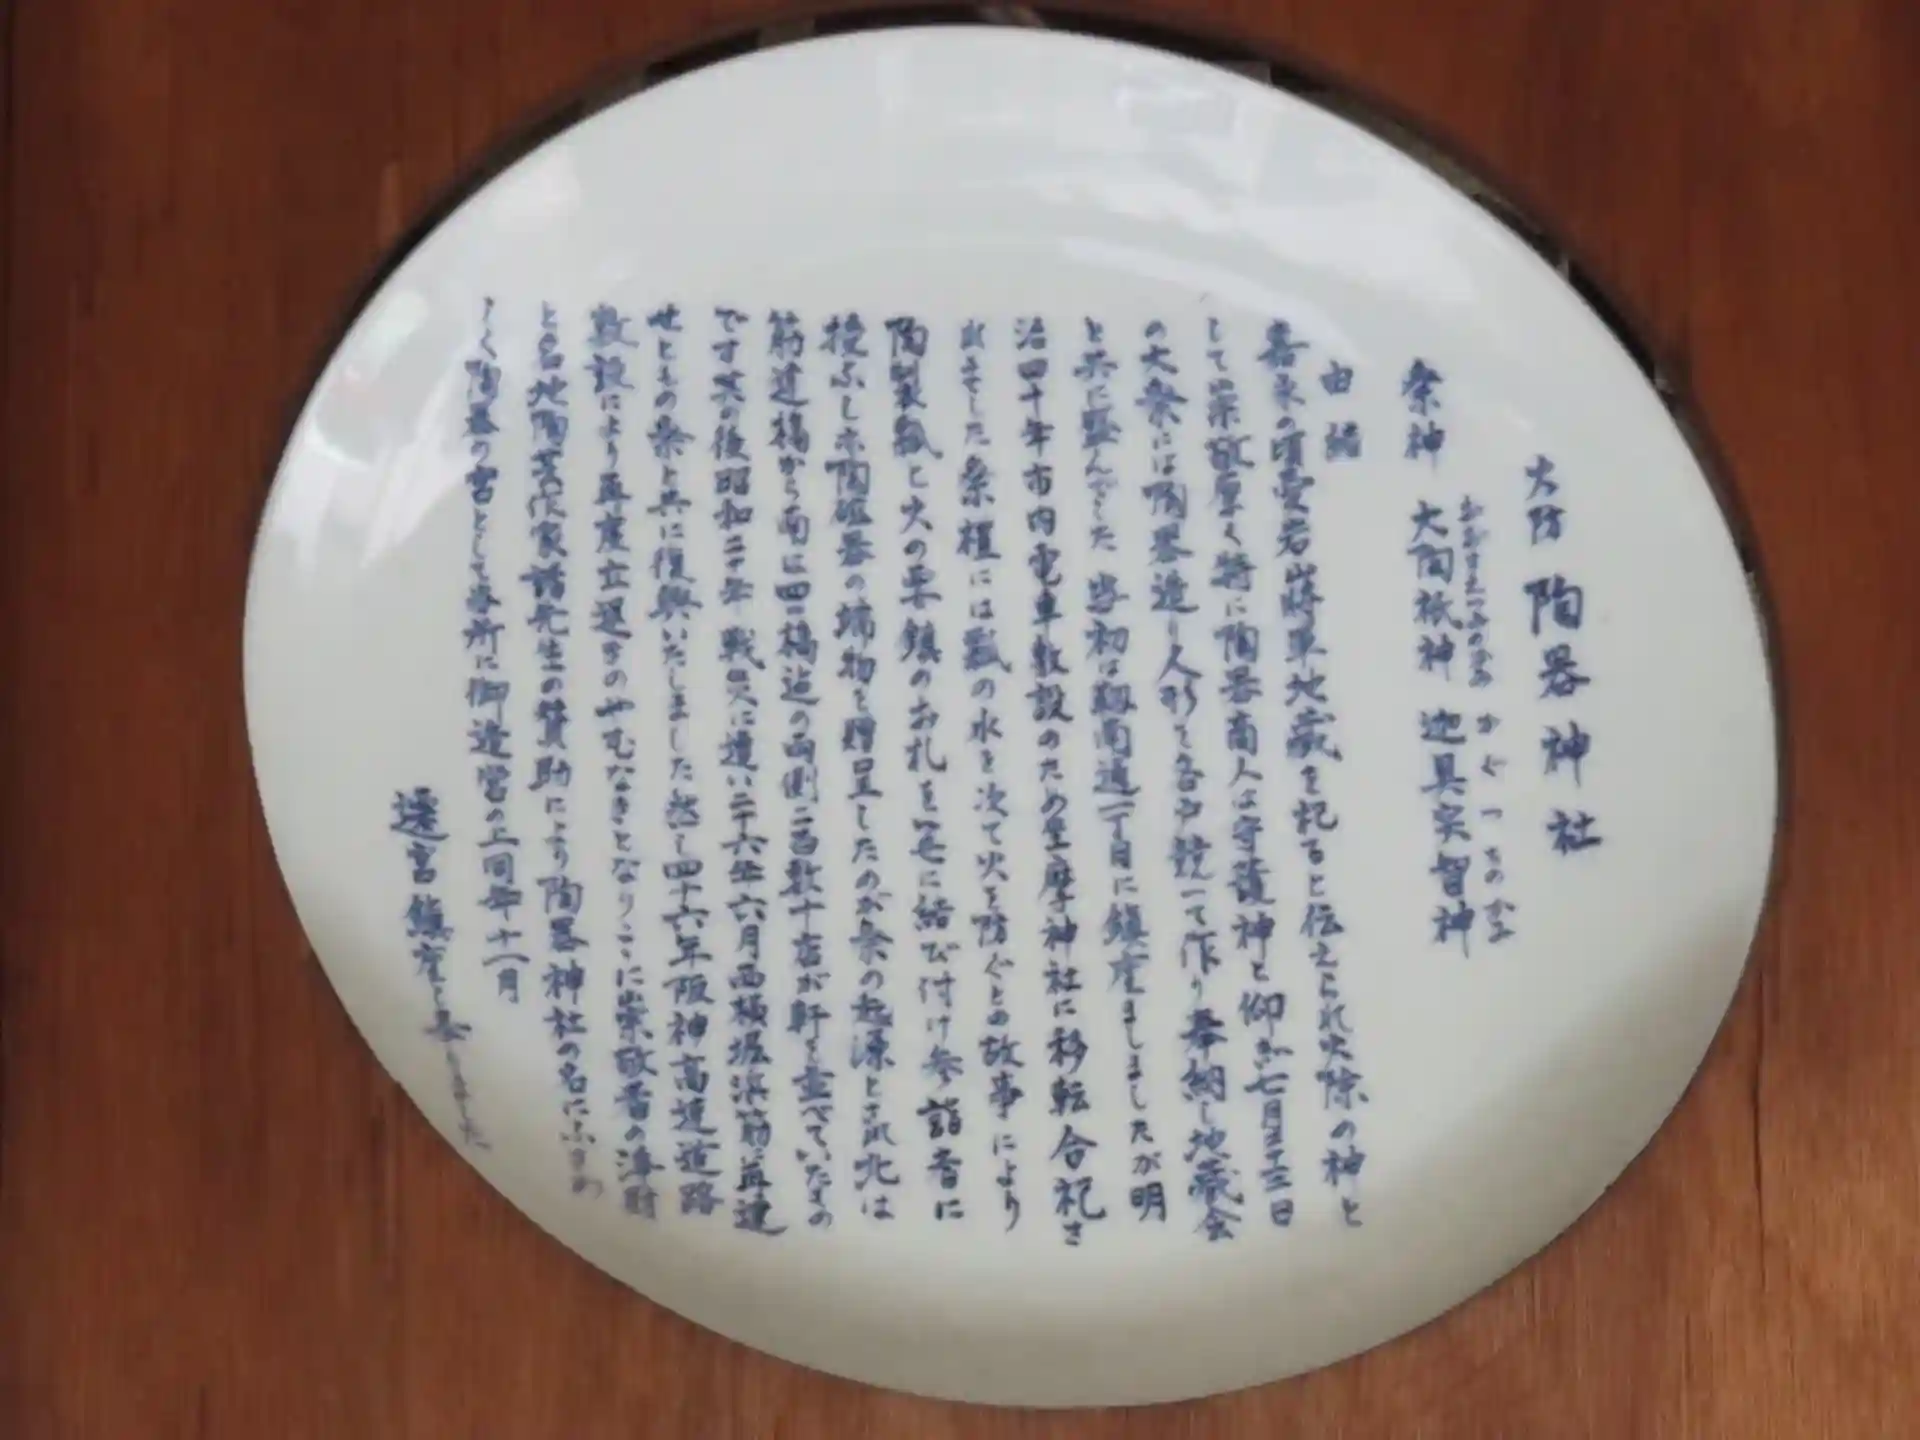 火防 陶器神社
おおすえつみのかみ かぐつちのかみ
祭神 大陶祇神 迦具突智神
由緒
嘉永の頃愛宕山将軍地蔵を祀ると伝えられ火除の神と
して崇敬厚く特に陶器商人は守護神と仰ぎ七月二十三日
の大祭には陶器造り人形を各戸競って作り奉納し地蔵会
と共に賑んでした 当初は靱南通一丁目に鎮座ましましたが明
治四十年市内電車敷設のため坐摩神社に移転合祀さ
れました祭壇には瓢の水を次て火を防ぐとの故事により
陶製瓢と火の要鎮のお札を笹に結び付け参詣者に
授ふし亦陶磁器の端物を贈呈したのが祭の起源とされ北は
筋違橋から南は四ツ橋迄の両側二百数十店が軒を並べていたもの
です其の後昭和二十年戦災に遭い二十六年六月西横堀浜筋に再建
せともの祭と共に復興いたしました然し四十六年阪神高速道路
敷設により再度立退きのやむなきとなりここに崇敬者の浄財
と各地陶芸作家諸先生の賛助により陶器神社の名にふさわ
しく陶器の宮として当所に御造営の上同年十一月
遷宮鎮座と奉りました